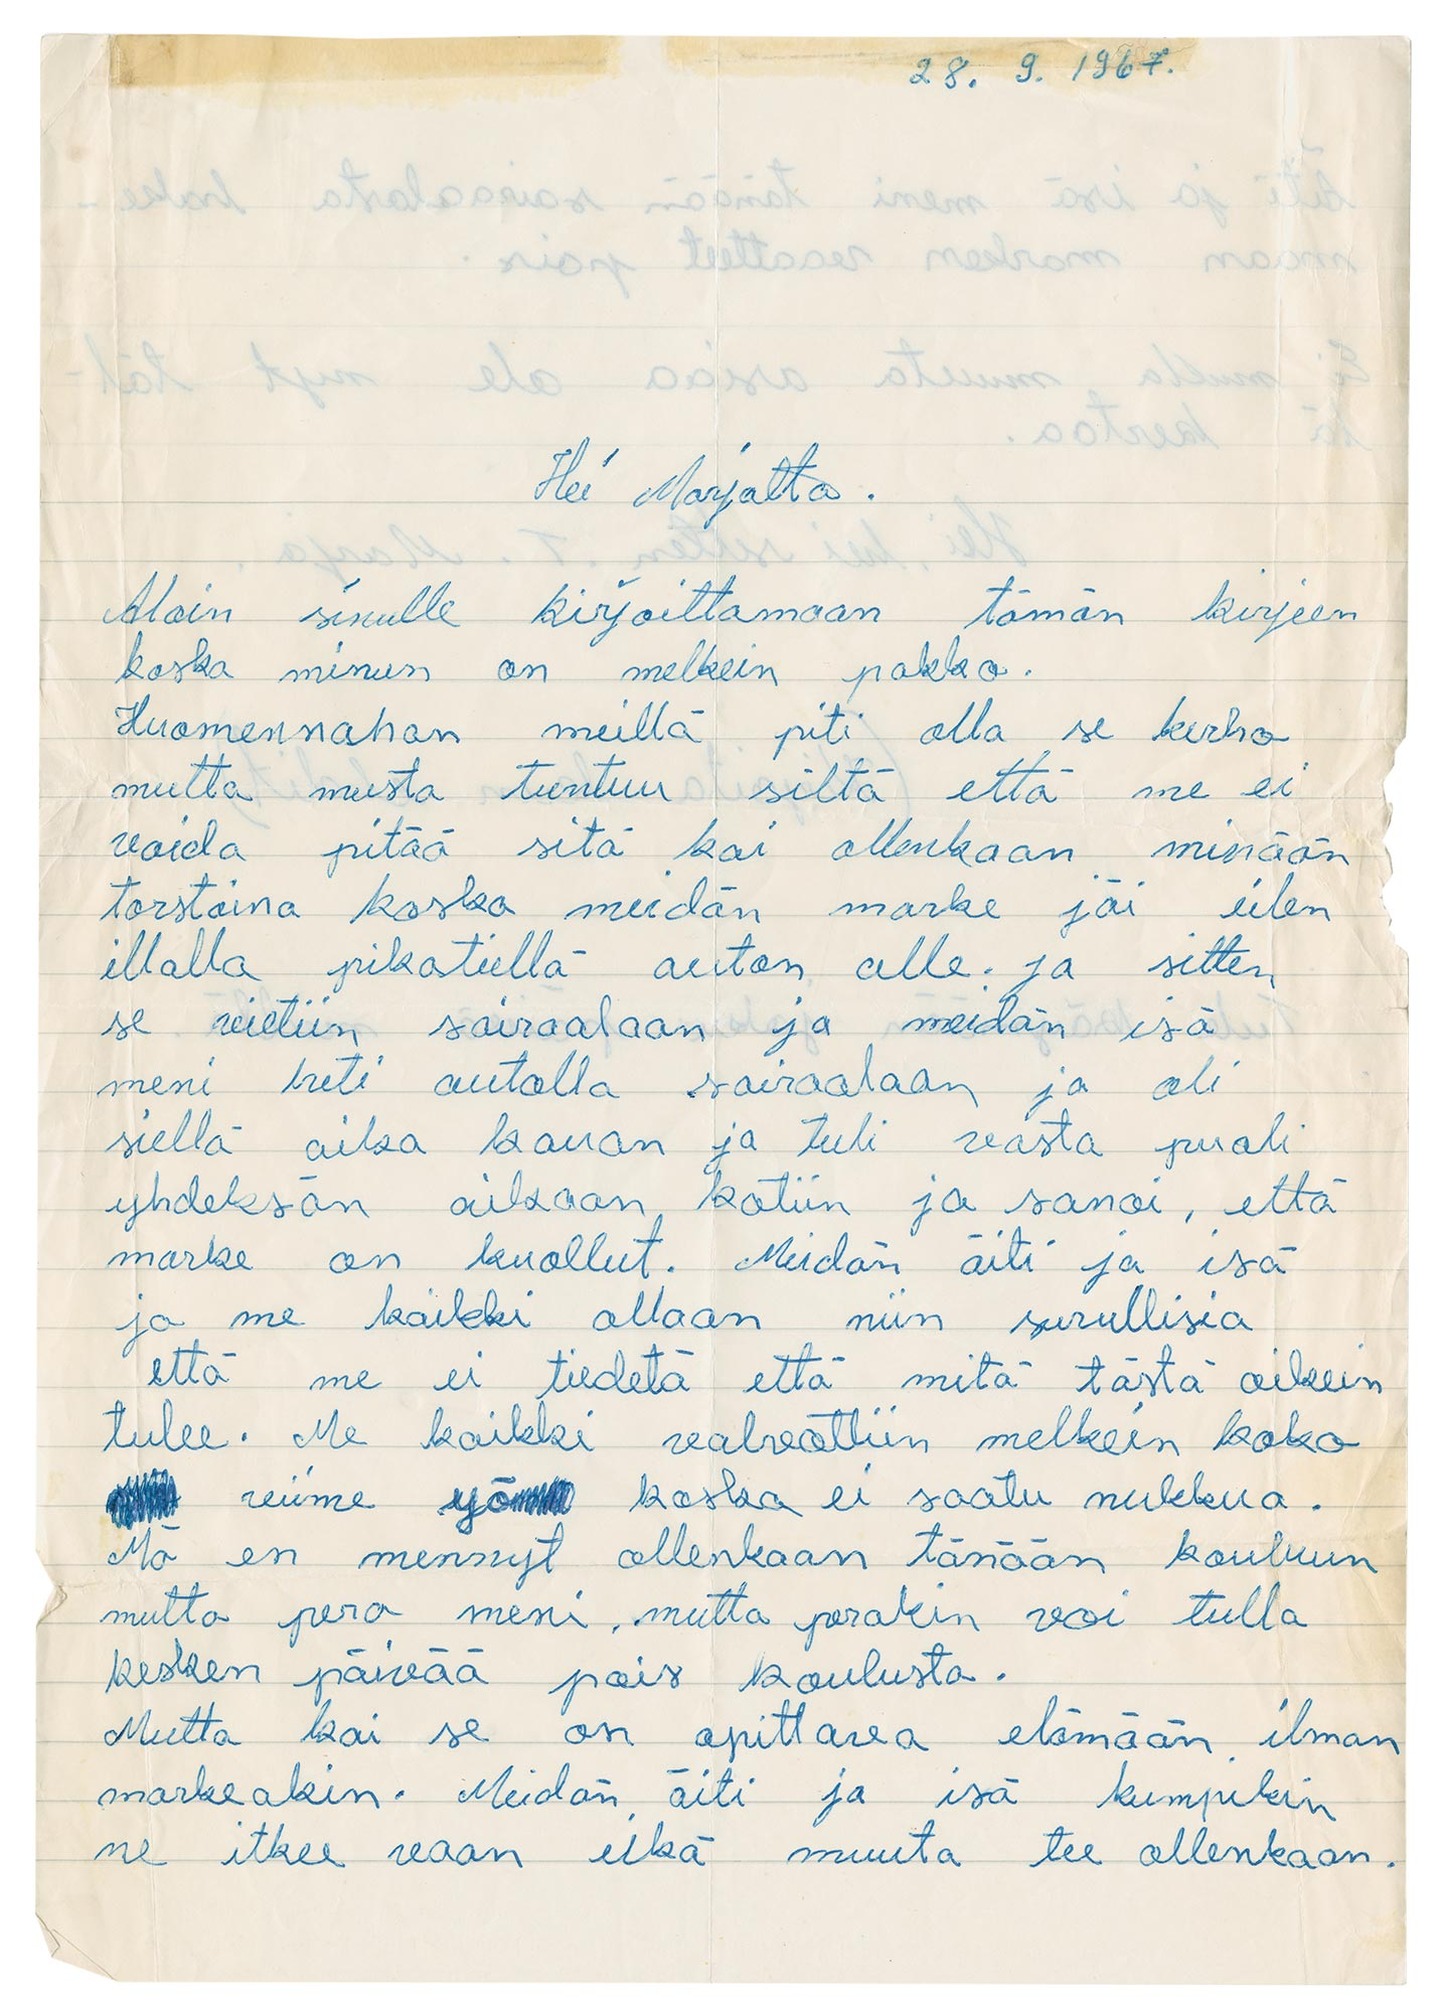 28. 9. 1967.
Hei Marjatta.
Aloin sinulle kirjoittamaan tämän kirjeen
koska minun on melkein pakko.
Huomennahan meillä piti olla se kerho
mutta musta tuntuu siltä että me ei
voida pitää sitä kai ollenkaan minään
torstaina koska meidän marke jäi eilen
illalla pikatiellä auton alle. ja sitten
se vietiin sairaalaan ja meidän isä
meni heti autolla sairaalaan ja oli
siellä aika kauan ja tuli vasta puoli
yhdeksän aikaan kotiin ja sanoi, että
marke on kuollut. Meidän äiti ja isä
ja me kaikki ollaan niin surullisia
että me ei tiedetä että mitä tästä oikein
tulee. Me kaikki valvottiin melkein koko
viime yö koska ei saatu nukkua.
Mä en mennyt ollenkaan tänään kouluun
mutta pera meni, mutta perakin voi tulla
kesken päivää pois koulusta.
Mutta kai se on opittava elämään ilman
markeakin. Meidän äiti ja isä kumpikin
ne itkee vaan eikä muuta tee ollenkaan.
Äiti ja isä meni tänään sairaalasta hake-
maan marken vaatteet pois.
Ei mulla muuta asiaa ole nyt täl-
lä kertaa.
Hei, hei sitten. T. Marja.